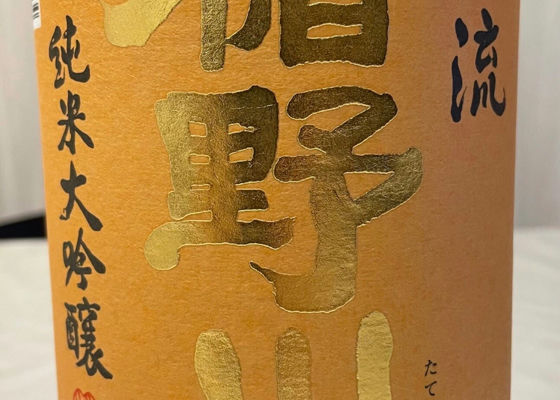 流
楯野川
たて
純米大吟醸